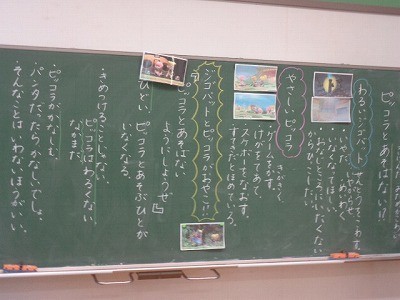 ピッコラとあそばない!!
わるいジゴバット
・いやだ。
・めいわく
・いなくなってほしい。
・おなじところにいたくない
やさしいピッコラ
けがをてあて。
スケボーをなおす。
すてきとほめている。
ジゴバットとピッコラがおやこ!!
ピッコラとあそばない
ようにしようぜ
ひどい。ピッコラとあそぶひとが
いなくなる。
・きめつけることじゃない
ピッコラはわるくない。
なかまだ
・ピッコラがかなしむ。
・パンダだったらかなしいでしょ。
・そんなことはいわないほうがいい。